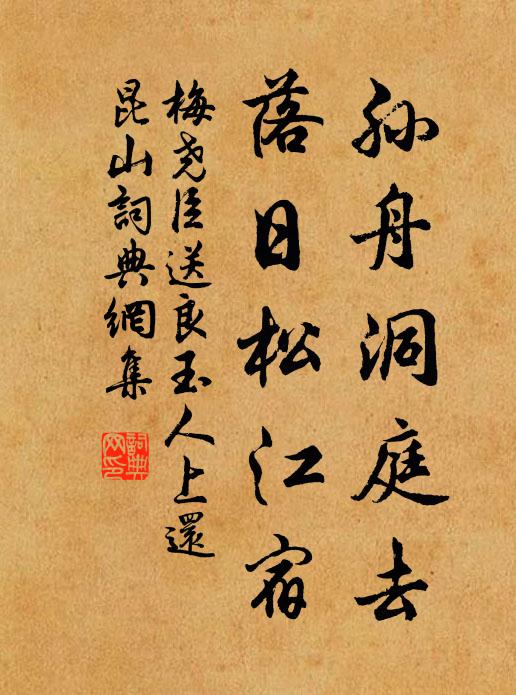 孤舟洞庭去
落日松江宿
梅尧臣送良玉人上還
昆山詞典網集
詞典网印